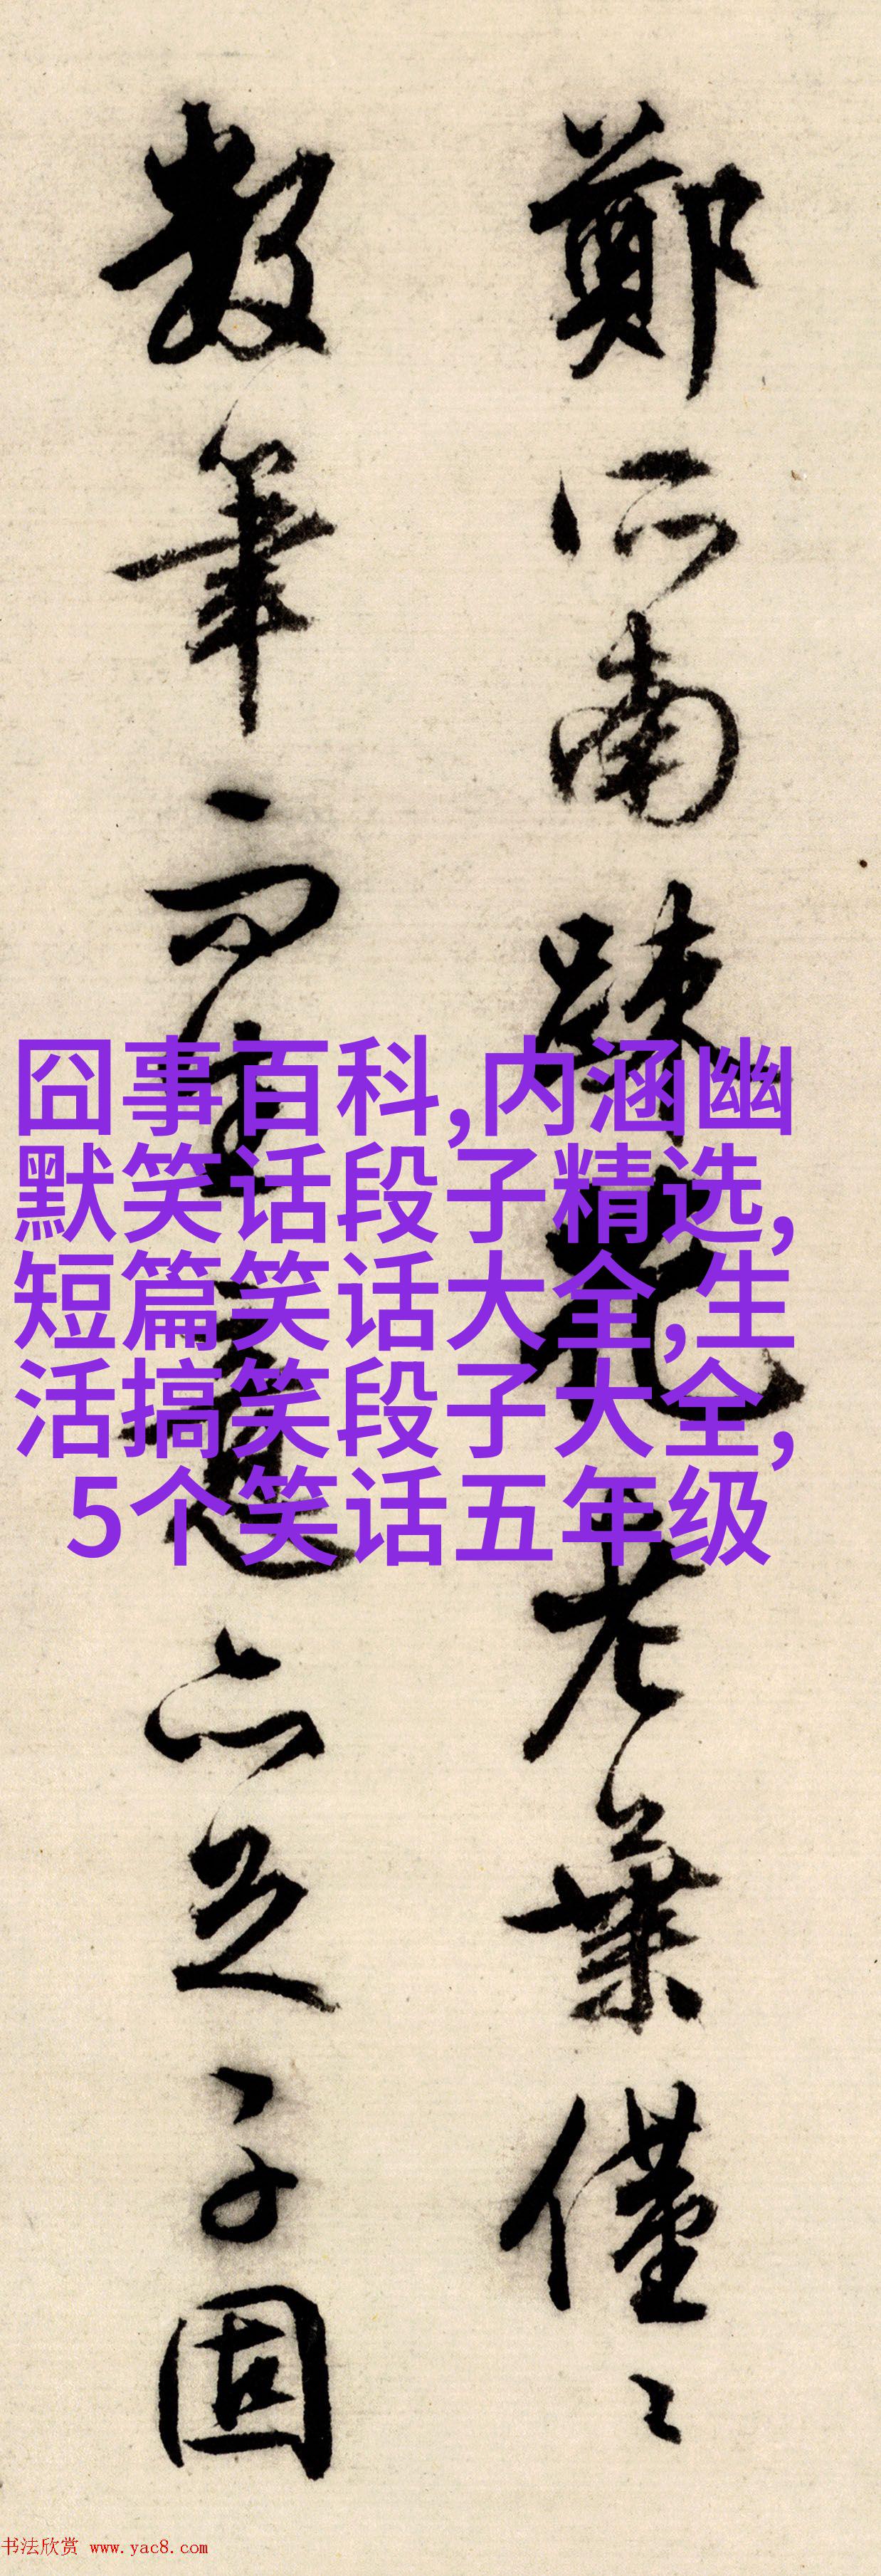 鄭所南踈花老葉僅〻
數筆而生意亦足子固
囧事百科,内涵幽
默笑话段子精选,
短篇笑话大全,生
活搞笑段子大全,
5个笑话五年级
书法欣赏 www.yac8.com